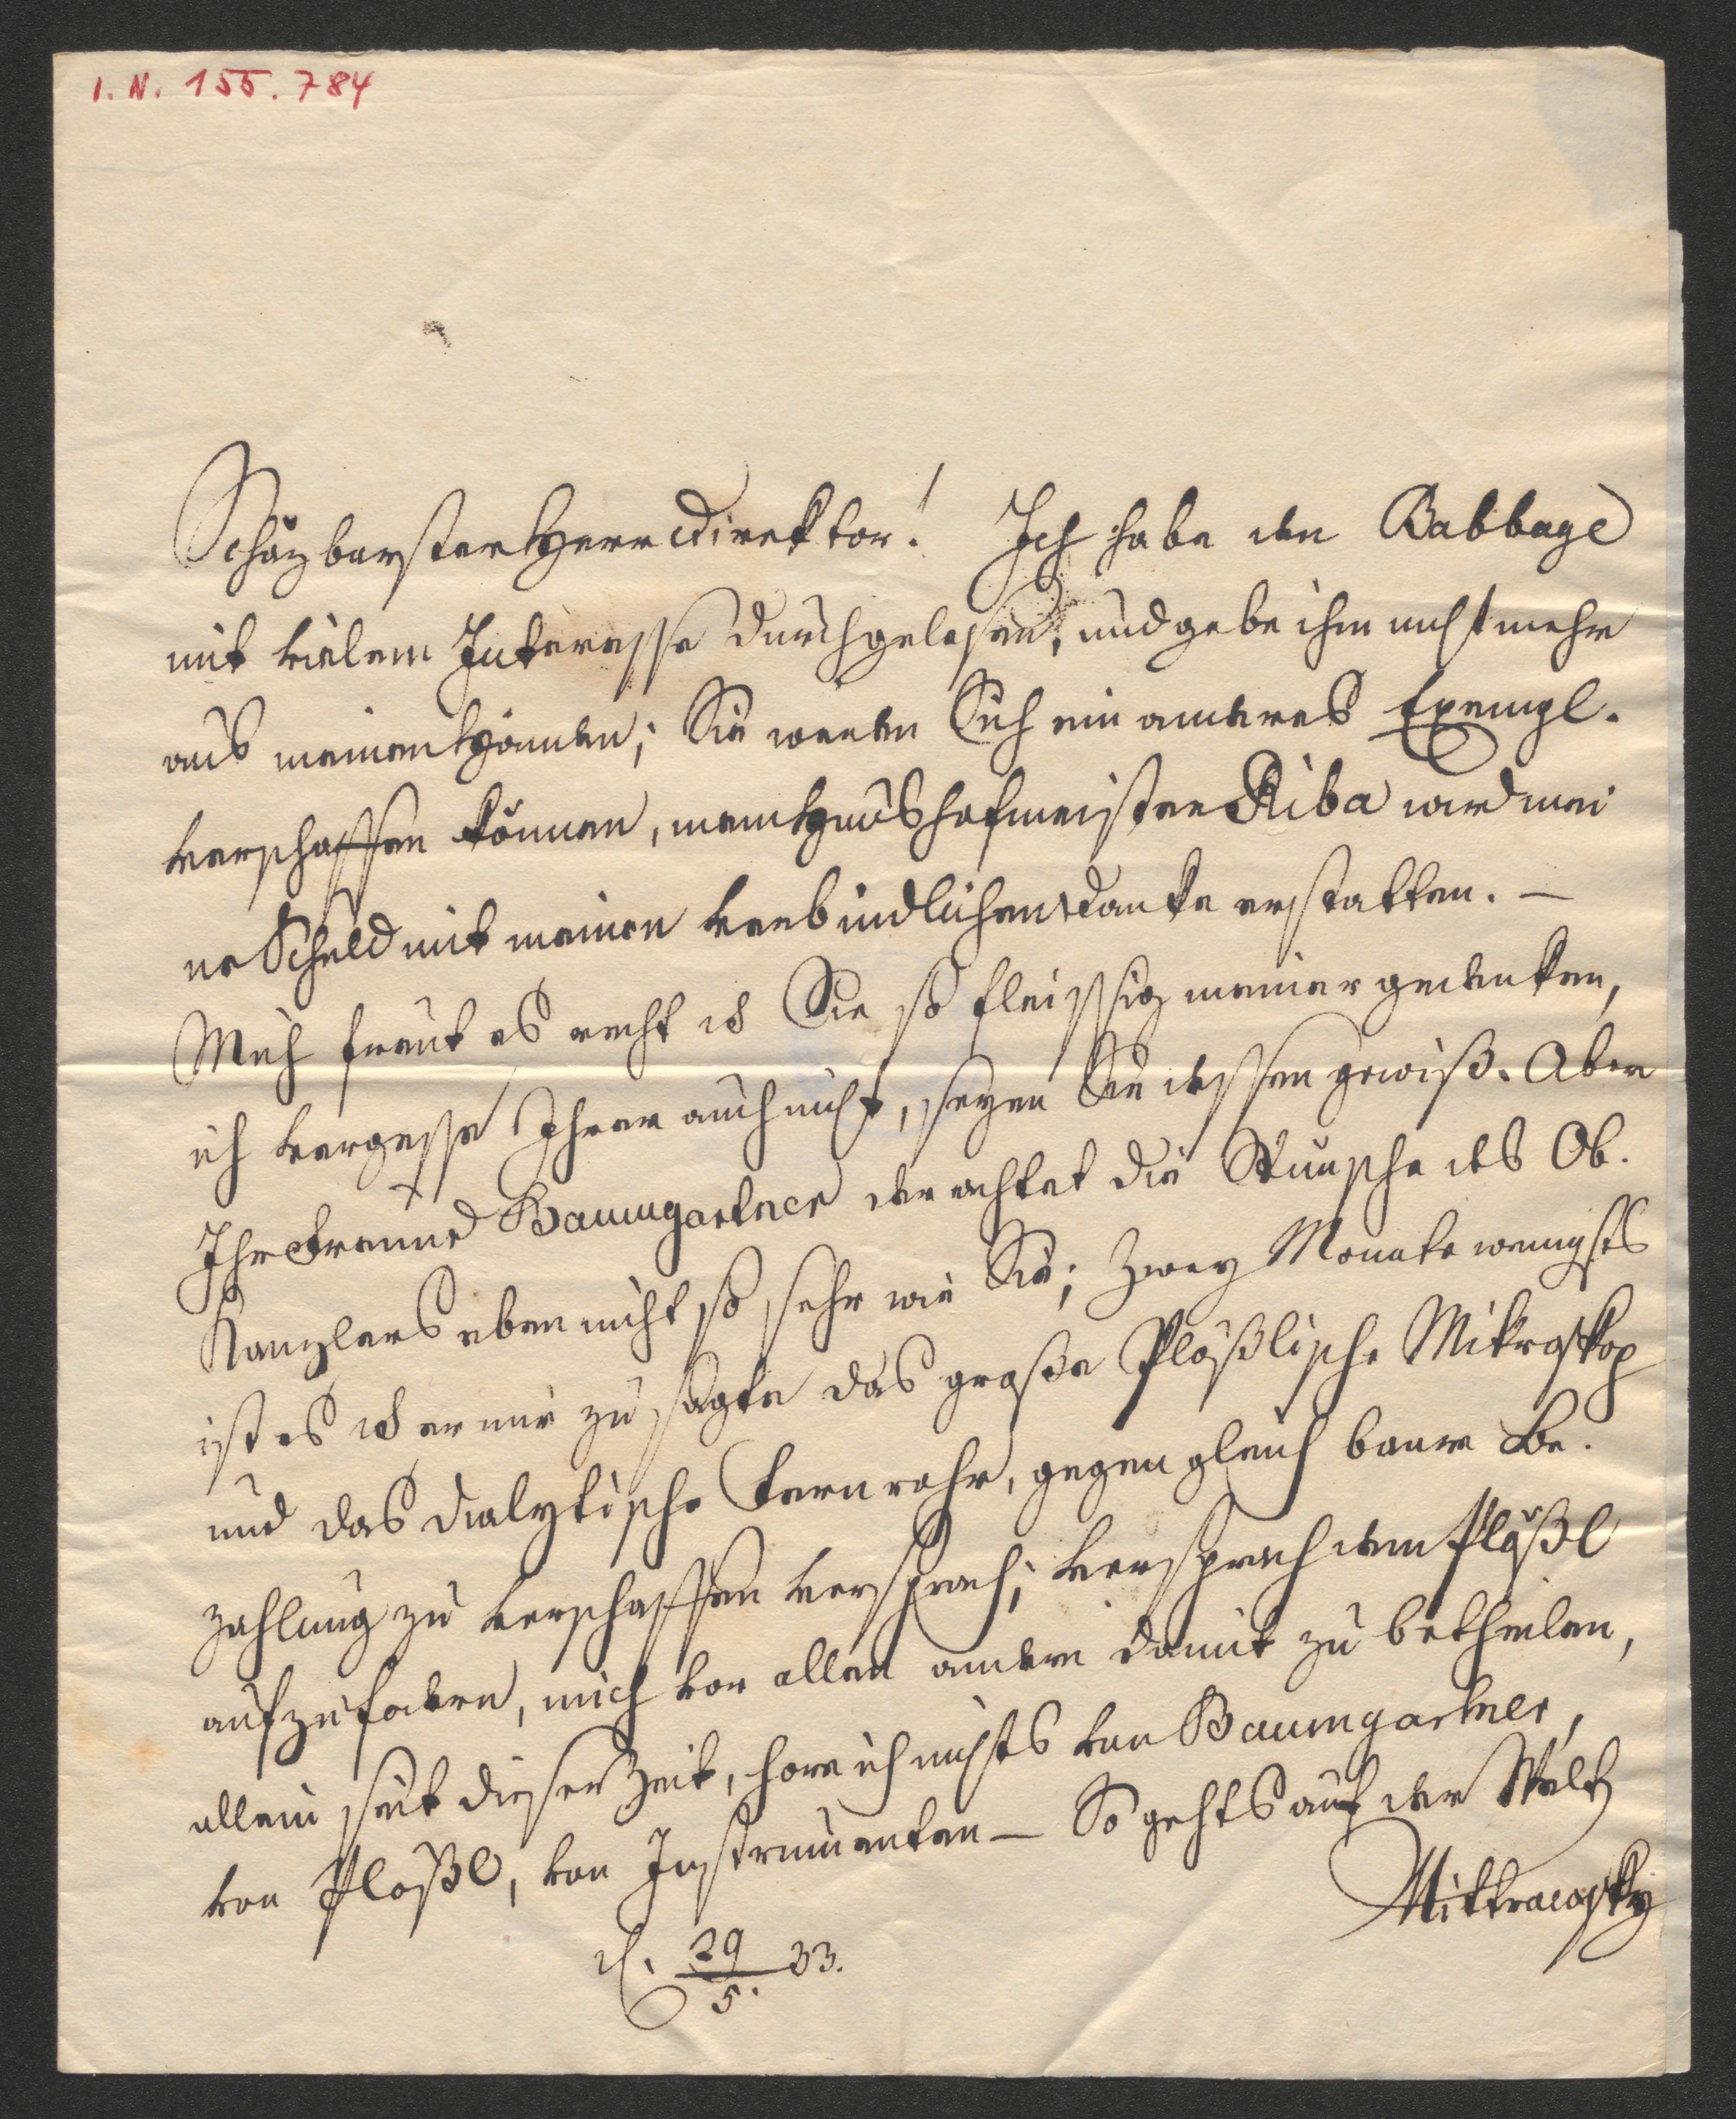 I. N. 155.784
Schäzbarster Herr Direktor! Ich habe den Babbage
mit vielem Interesse durchgelesen, und gebe ihm nicht mehr
aus meinen Händen; Sie werden Sich ein anderes Exempl.
verschaffen können, mein Haushofmeister Riba wird mei
ne Schuld mit meinen verbindlichen Danke erstatten. —
Mich freut es recht daß Sie so fleissig meiner gedenken,
ich vergesse Ihrer auch nicht, seyen Sie dessen gewiß. Aber
Ihr Freund Baumgartner der achtet die Wünsche des Ob.
Kanzlers eben nicht so sehr wie Sie; Zwey Monate wenigsts
ist es daß er mir zu sagte das große Plößlische Mikroskop
und das dialytische Fernrohr, gegen gleich baare Be.
zahlung zu verschaffen versprach; versprach dem Plößl
aufzufodern, mich vor allen andern damit zu betheilen,
allein seit dieser Zeit, hore ich nichts von Baumgartner,
von Plößl, von Instrumenten — So gehts auf der Welt
Mittrowsky
d. 29/5. 33.